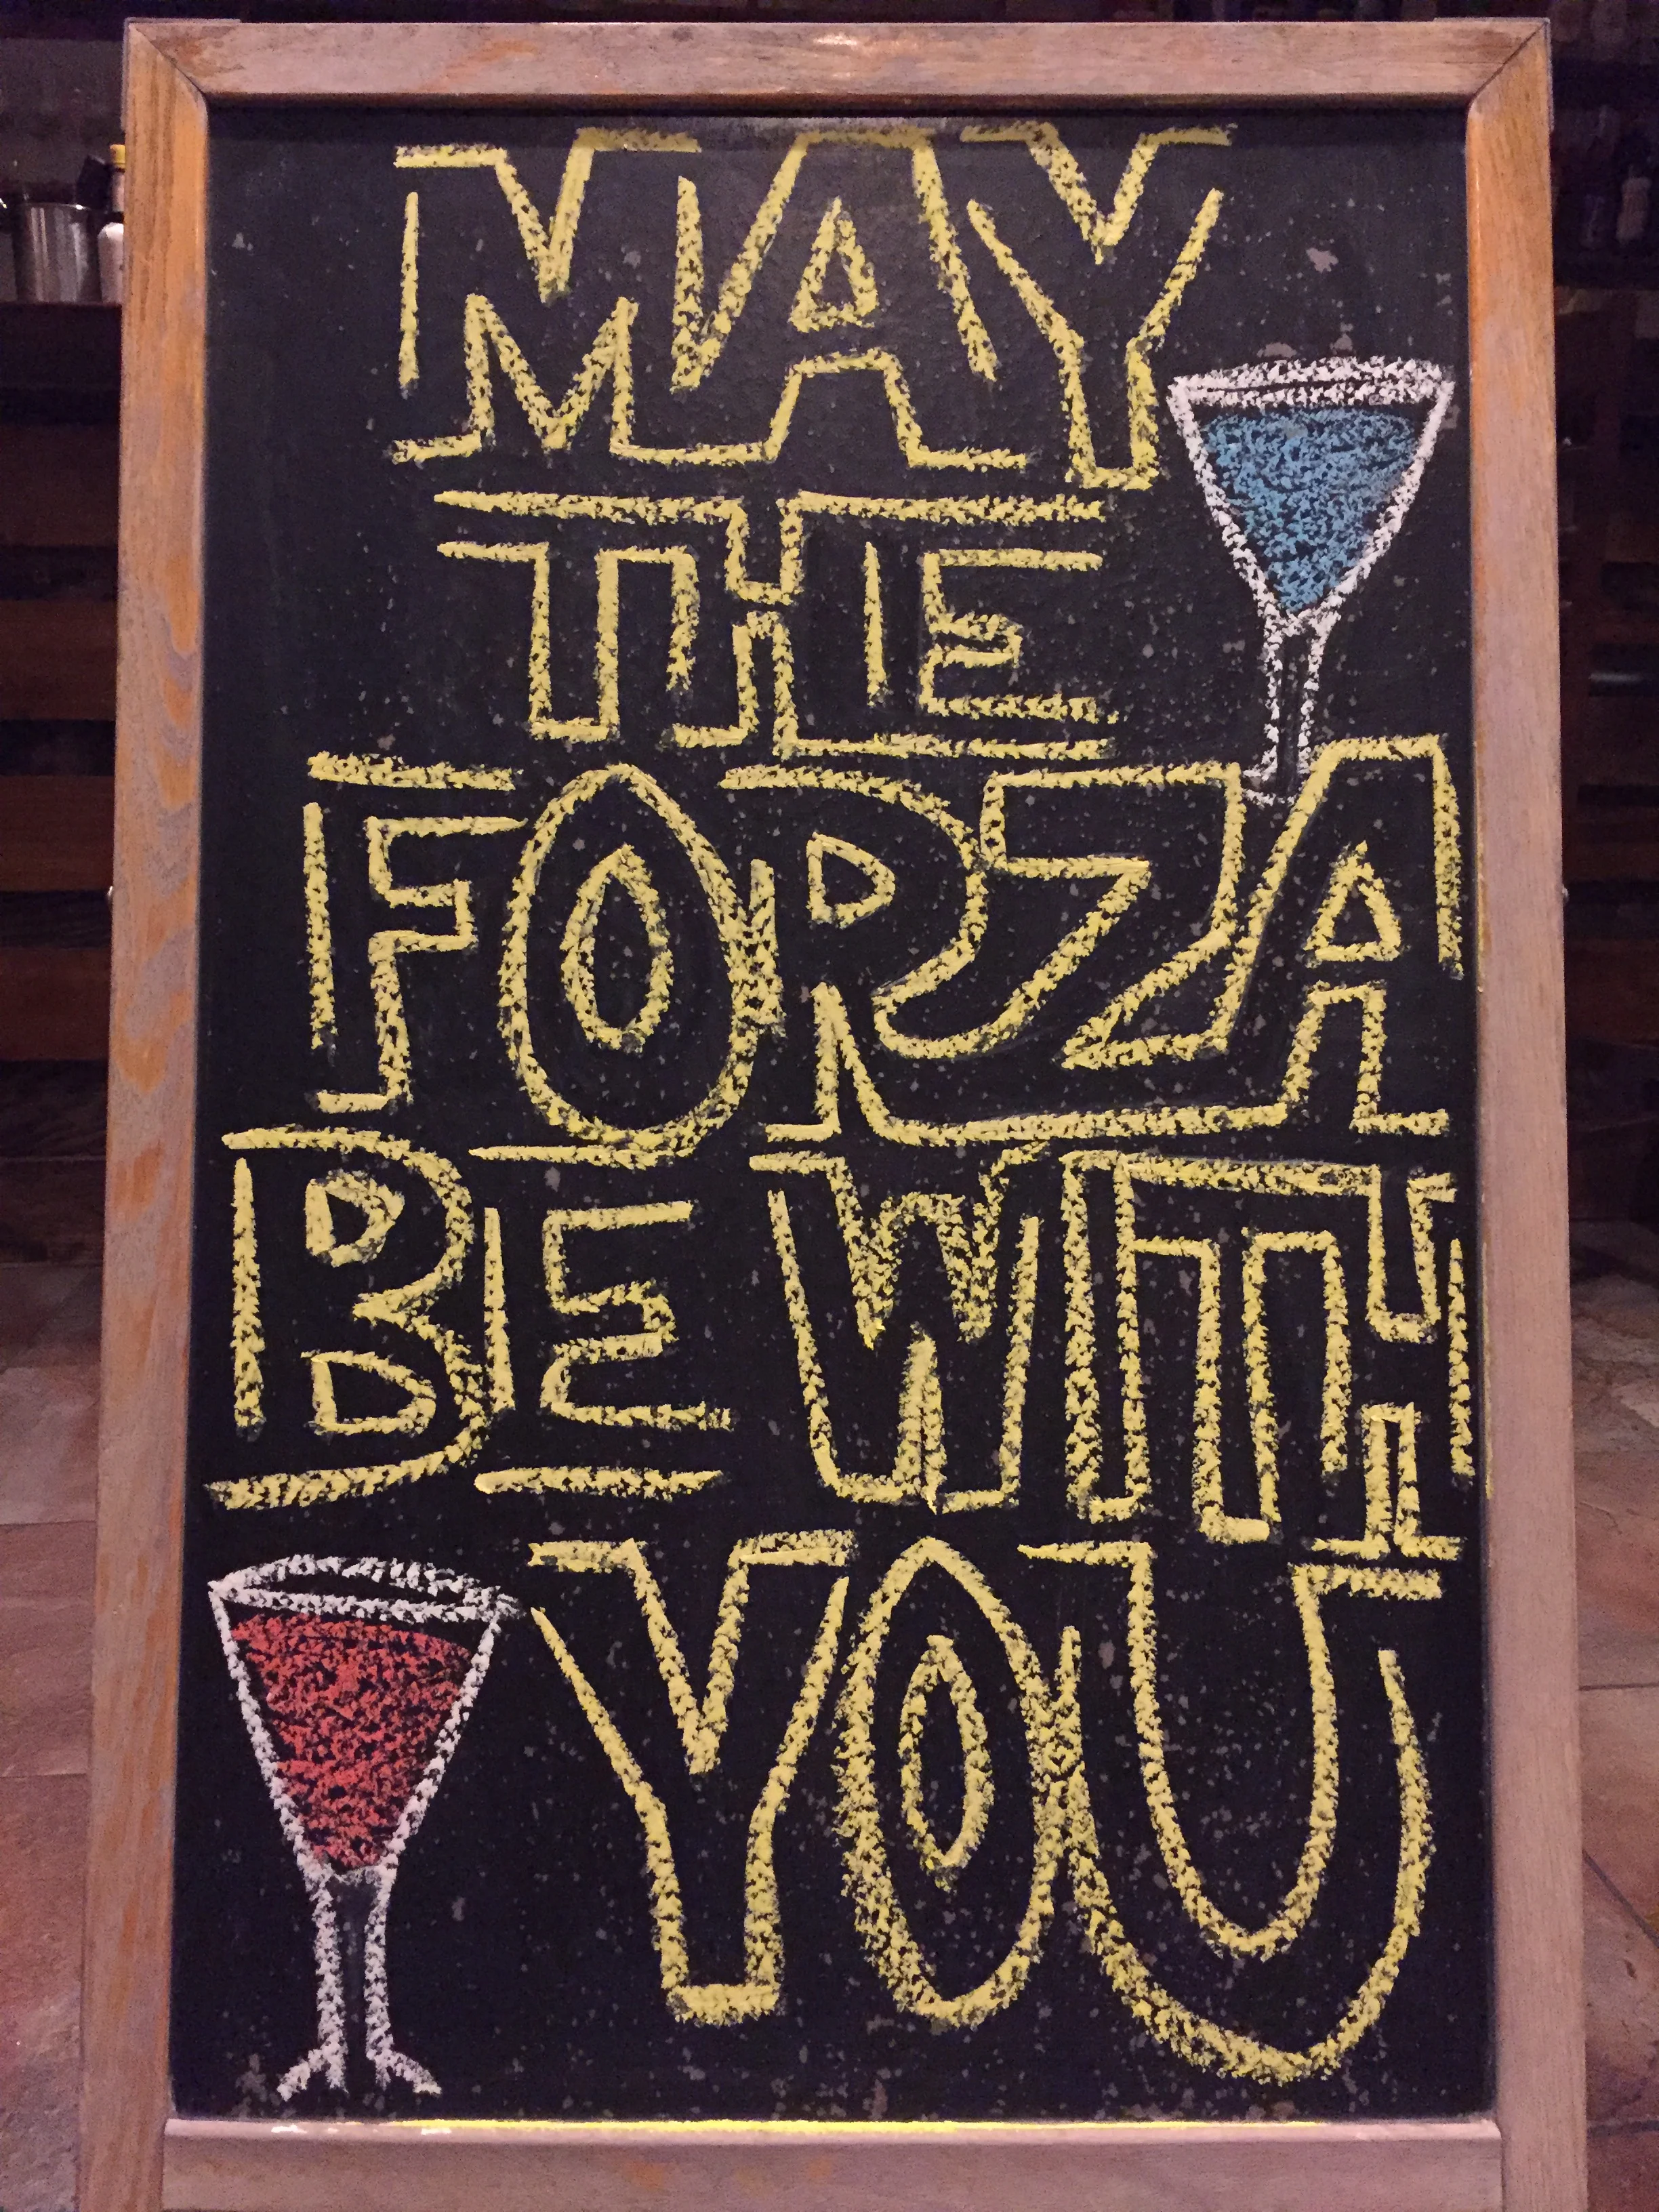 MAY
THE
FORZA
BE WITH
YOU